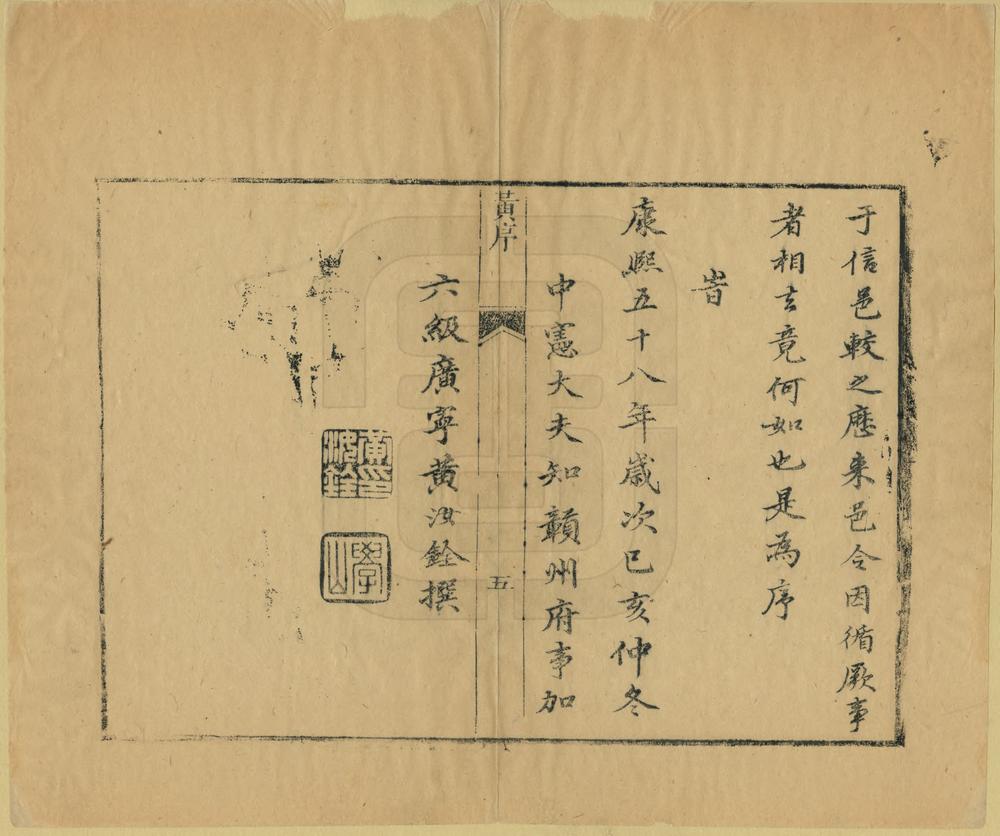 于信邑較之歷来邑令因循厥事
者相去竟何如也是為序
旹
康熙五十八年歲次己亥仲冬
黃序
五
中憲大夫知贛州府事加
六級廣寧黃汝銓撰
黃汝銓印
學山